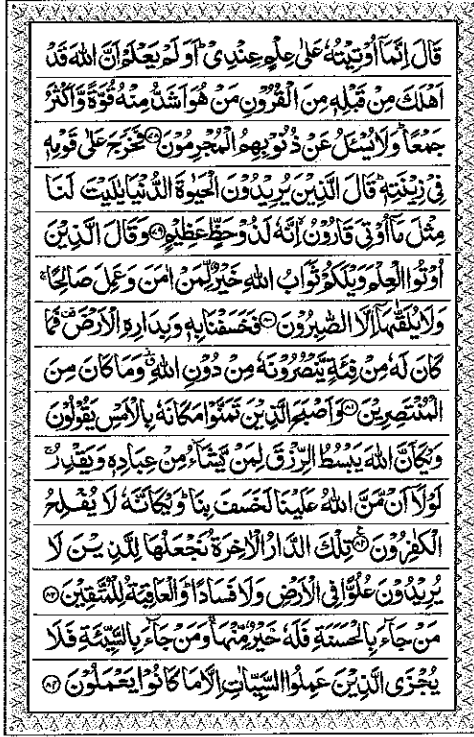 قَالَ اِنَّمَاۤ اُوْتِيْتُهٗ عَلٰى عِلْمٍ عِنْدِىْ ؕ اَوَلَمْ يَعْلَمْ اَنَّ اللّٰهَ قَدْ
اَهْلَكَ مِنْ قَبْلِهٖ مِنَ الْقُرُوْنِ مَنْ هُوَ اَشَدُّ مِنْهُ قُوَّةً وَّاَكْثَرُ
جَمْعًا ؕ وَلَا يُسْئَلُ عَنْ ذُنُوْبِهِمُ الْمُجْرِمُوْنَ ﴿۷۸﴾ فَخَرَجَ عَلٰى قَوْمِهٖ
فِىْ زِيْنَتِهٖ ؕ قَالَ الَّذِيْنَ يُرِيْدُوْنَ الْحَيٰوةَ الدُّنْيَا يٰلَيْتَ لَنَا
مِثْلَ مَاۤ اُوْتِىَ قَارُوْنُ ۙ اِنَّهٗ لَذُوْ حَظٍّ عَظِيْمٍ ﴿۷۹﴾ وَقَالَ الَّذِيْنَ
اُوْتُوا الْعِلْمَ وَيْلَكُمْ ثَوَابُ اللّٰهِ خَيْرٌ لِّمَنْ اٰمَنَ وَعَمِلَ صَالِحًا ۚ
وَلَا يُلَقّٰىهَاۤ اِلَّا الصّٰبِرُوْنَ ﴿۸۰﴾ فَخَسَفْنَا بِهٖ وَبِدَارِهِ الْاَرْضَ ۟ فَمَا
كَانَ لَهٗ مِنْ فِئَةٍ يَّنْصُرُوْنَهٗ مِنْ دُوْنِ اللّٰهِ ۟ وَمَا كَانَ مِنَ
الْمُنْتَصِرِيْنَ ﴿۸۱﴾ وَاَصْبَحَ الَّذِيْنَ تَمَنَّوْا مَكَانَهٗ بِالْاَمْسِ يَقُوْلُوْنَ
وَيْكَاَنَّ اللّٰهَ يَبْسُطُ الرِّزْقَ لِمَنْ يَّشَآءُ مِنْ عِبَادِهٖ وَيَقْدِرُ ۚ
لَوْلَاۤ اَنْ مَّنَّ اللّٰهُ عَلَيْنَا لَخَسَفَ بِنَا ؕ وَيْكَاَنَّهٗ لَا يُفْلِحُ
الْكٰفِرُوْنَ ﴿۸۲﴾ تِلْكَ الدَّارُ الْاٰخِرَةُ نَجْعَلُهَا لِلَّذِيْنَ لَا
يُرِيْدُوْنَ عُلُوًّا فِى الْاَرْضِ وَلَا فَسَادًا ؕ وَالْعَاقِبَةُ لِلْمُتَّقِيْنَ ﴿۸۳﴾
مَنْ جَآءَ بِالْحَسَنَةِ فَلَهٗ خَيْرٌ مِّنْهَا ۚ وَمَنْ جَآءَ بِالسَّيِّئَةِ فَلَا
يُجْزَى الَّذِيْنَ عَمِلُوا السَّيِّاٰتِ اِلَّا مَا كَانُوْا يَعْمَلُوْنَ ﴿۸۴﴾